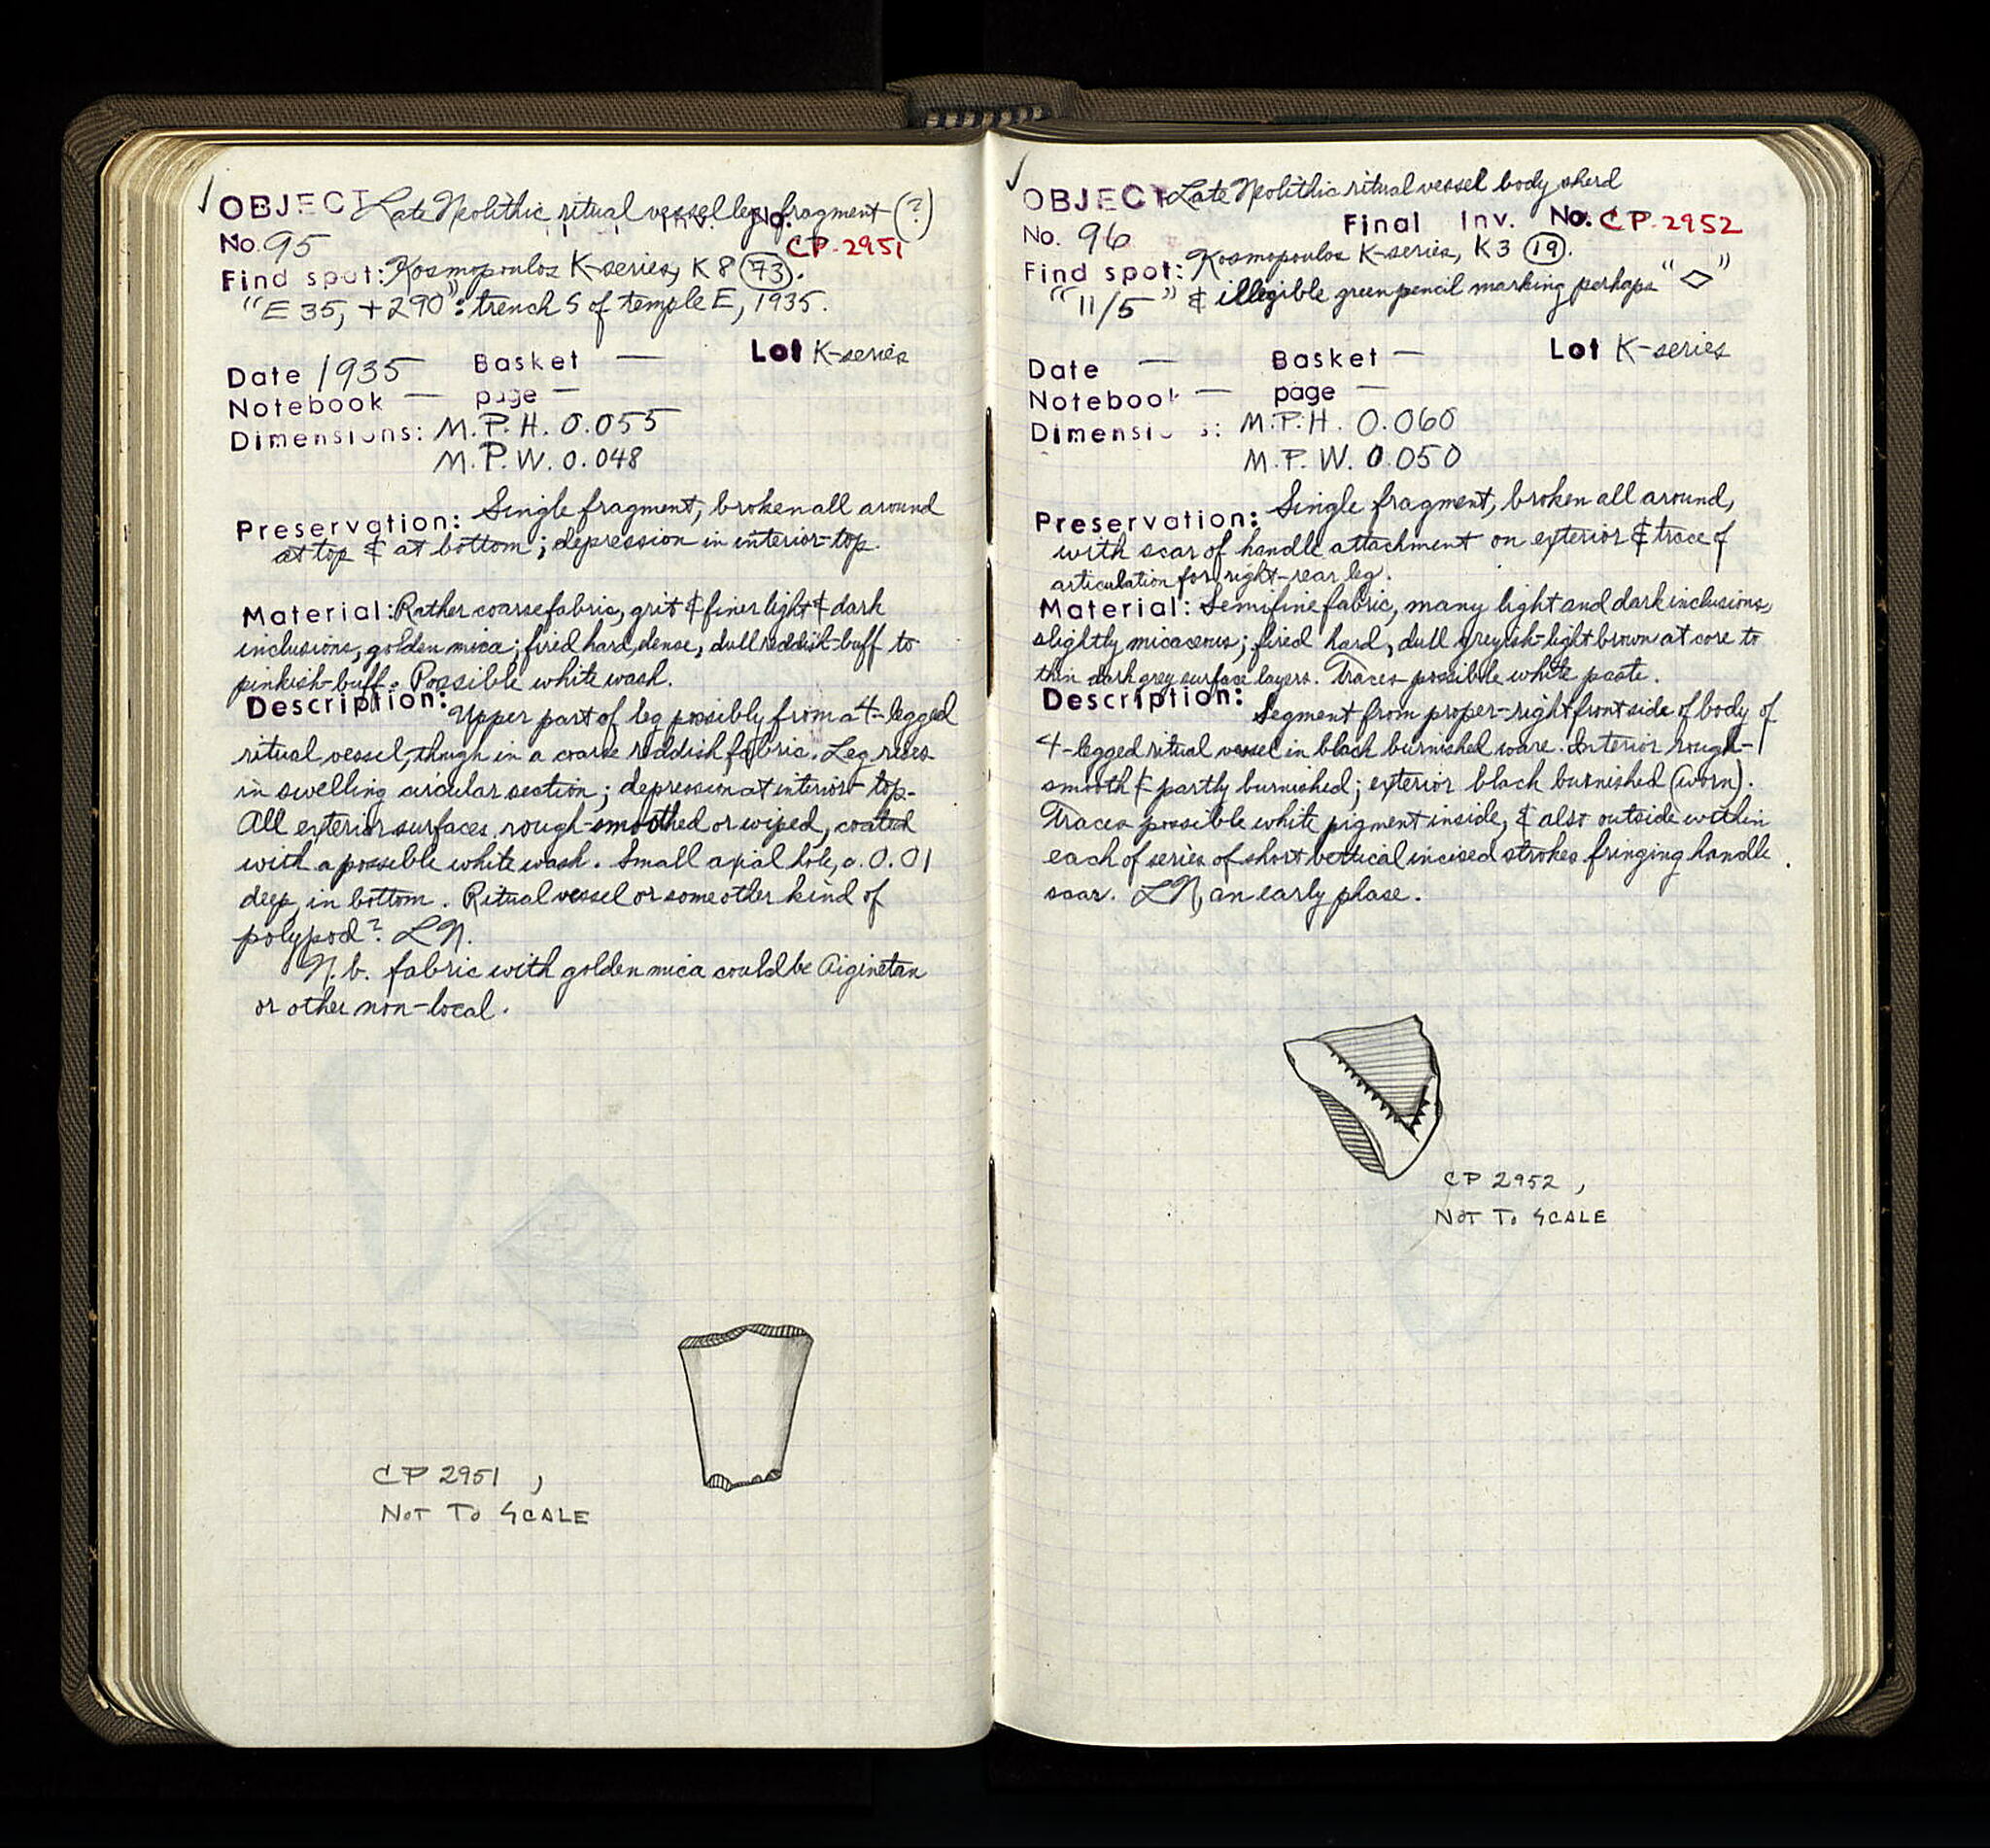 OBJECT Late Neolithic ritual vessel leg fragment (?)
Inv. No.
No. 95 CP-2951
Find spot: Kosmopoulos K-series, K8 (73).
"E 35, +290": trench S of temple E, 1935.
Date 1935 Basket — Lot K-series
Notebook — page —
Dimensions: M.P.H. 0.055
M.P.W. 0.048
Preservation: Single fragment, broken all around
at top & at bottom; depression in interior top.
Material: Rather coarse fabric, grit & finer light & dark
inclusions, golden mica; fired hard, dense, dull reddish-buff to
pinkish-buff. Possible white wash.
Description: Upper part of leg possibly from a 4-legged
ritual vessel, though in a coarse reddish fabric. Leg rises
in swelling circular section; depression at interior top.
All exterior surfaces rough-smoothed or wiped, coated
with a possible white wash. Small axial hole, c. 0.01
deep, in bottom. Ritual vessel or some other kind of
polypod? LN.
N.b. fabric with golden mica could be Aiginetan
or other non-local.
CP 2951,
NOT TO SCALE
OBJECT Late Neolithic ritual vessel body sherd
Final Inv. No. CP-2952
No. 96
Find spot: Kosmopoulos K-series, K3 (19).
"11/5" & illegible green pencil marking perhaps "◇"
Date — Basket — Lot K-series
Notebook — page —
Dimensions: M.P.H. 0.060
M.P.W. 0.050
Preservation: Single fragment, broken all around,
with scar of handle attachment on exterior & trace of
articulation for right-rear leg.
Material: Semifine fabric, many light and dark inclusions,
slightly micaceous; fired hard, dull greyish-light brown at core to
thin dark grey surface layers. Traces possible white paste.
Description: Segment from proper-right front side of body of
4-legged ritual vessel in black burnished ware. Interior rough-
smooth & partly burnished; exterior black burnished (worn).
Traces possible white pigment inside, & also outside within
each of series of short vertical incised strokes fringing handle
scar. LN, an early phase.
CP 2952,
NOT TO SCALE